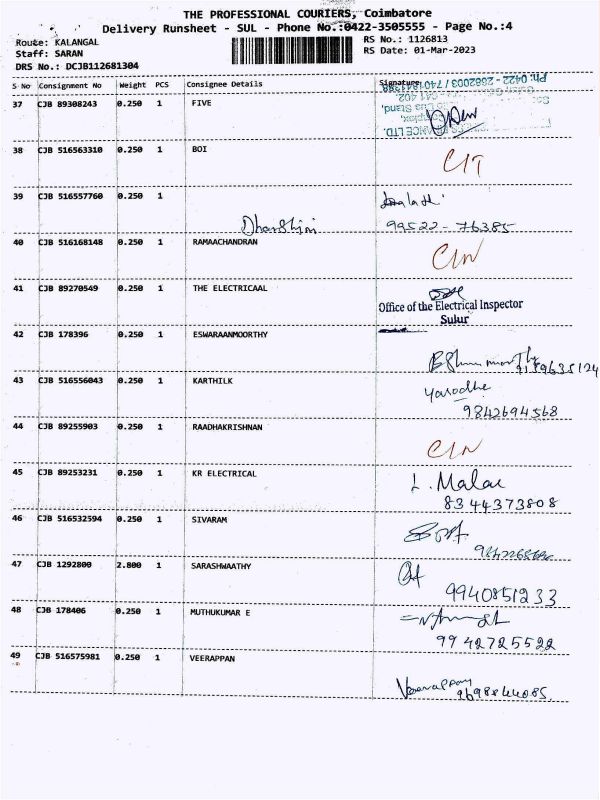 THE PROFESSIONAL COURIERS, Coimbatore
Delivery Runsheet - SUL - Phone No.:0422-3505555 - Page No.:4
Route: KALANGAL RS No.: 1126813
Staff: SARAN RS Date: 01-Mar-2023
DRS No.: DCJB112681304
S No Consignment No Weight PCS Consignee Details Signature
37 CJB 89308243 0.250 1 FIVE
38 CJB 516563310 0.250 1 BOI
39 CJB 516557760 0.250 1
Dharshini 99522-76385
40 CJB 516168148 0.250 1 RAMAACHANDRAN
41 CJB 89270549 0.250 1 THE ELECTRICAAL
Office of the Electrical Inspector
Sulur
42 CJB 178396 0.250 1 ESWARAANMOORTHY
43 CJB 516556043 0.250 1 KARTHILK
Yasodha
9842694568
44 CJB 89255903 0.250 1 RAADHAKRISHNAN
45 CJB 89253231 0.250 1 KR ELECTRICAL
L. Malar
8344373808
46 CJB 516532594 0.250 1 SIVARAM
47 CJB 1292800 2.800 1 SARASHWAATHY
9940851233
48 CJB 178406 0.250 1 MUTHUKUMAR E
9942725522
49 CJB 516575981 0.250 1 VEERAPPAN
Veerappan